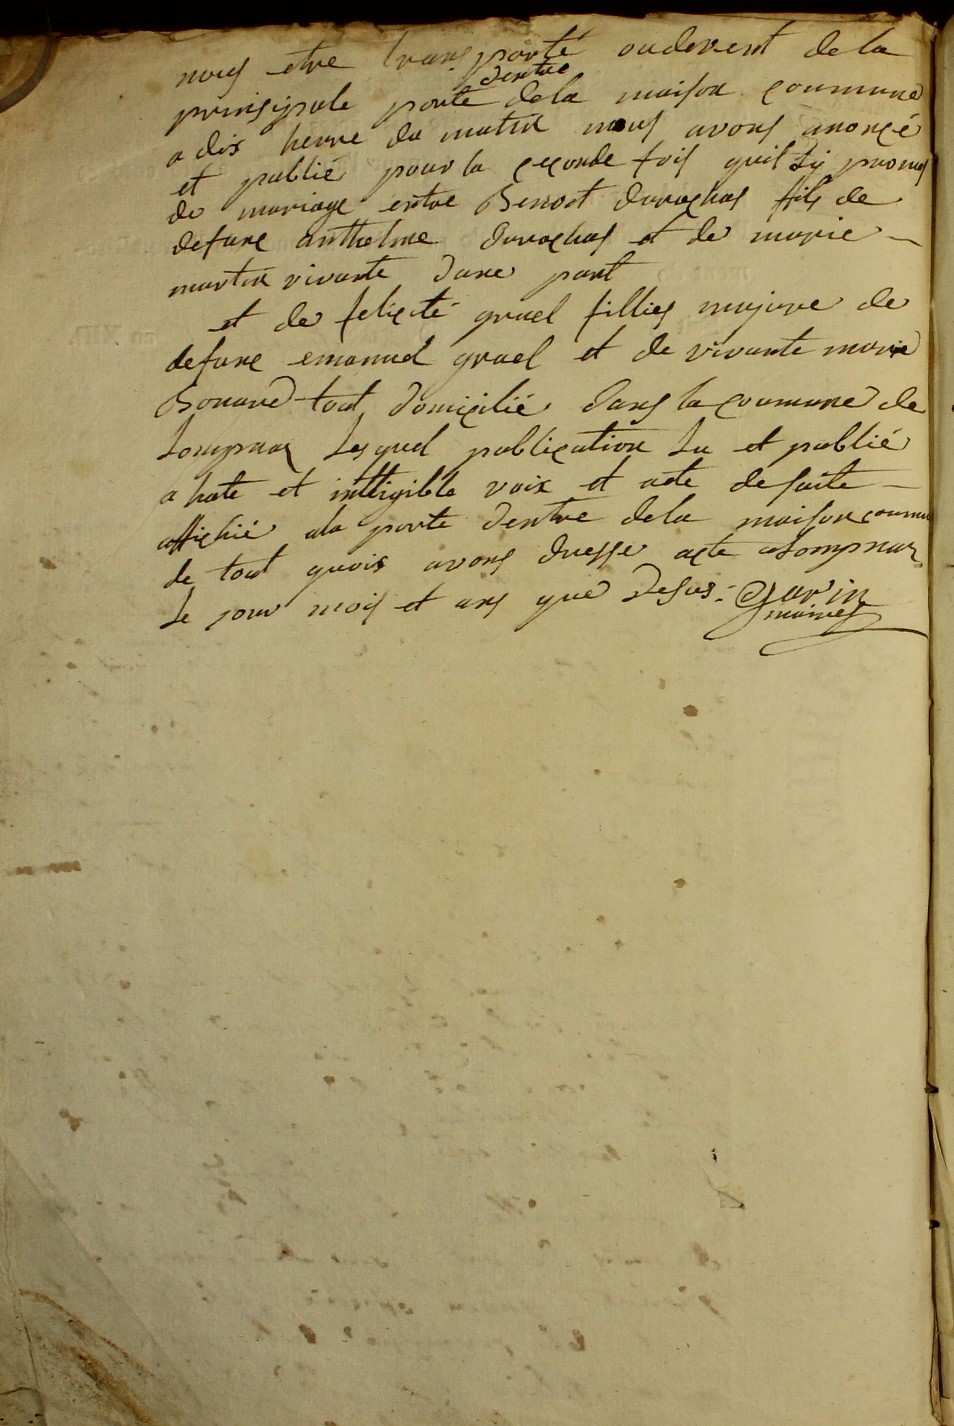 nous etre transporté oudevent de la
prinsipale porte dentre dela maison commune
a dix heure du matin nous avons anonçé
et publié pour la çeçonde fois quil sÿ promes
de mariage entre Benoit durochas fils de
defunt anthelme durochas et de marie
martin vivante dune part
et de feliçité gruel fillies majure de
defunt emanuel gruel et de vivante marie
Bonard tout domiçilié dans la commune de
Lompnas Lesquel publiçation Lu et publié
a hate et inttigible voix et acte desuite
affiçhié ala porte dentre dela maison commu
de tout quois avons dresse acte a Lompnas
Le jour mois et ans que desus. Savin
maire